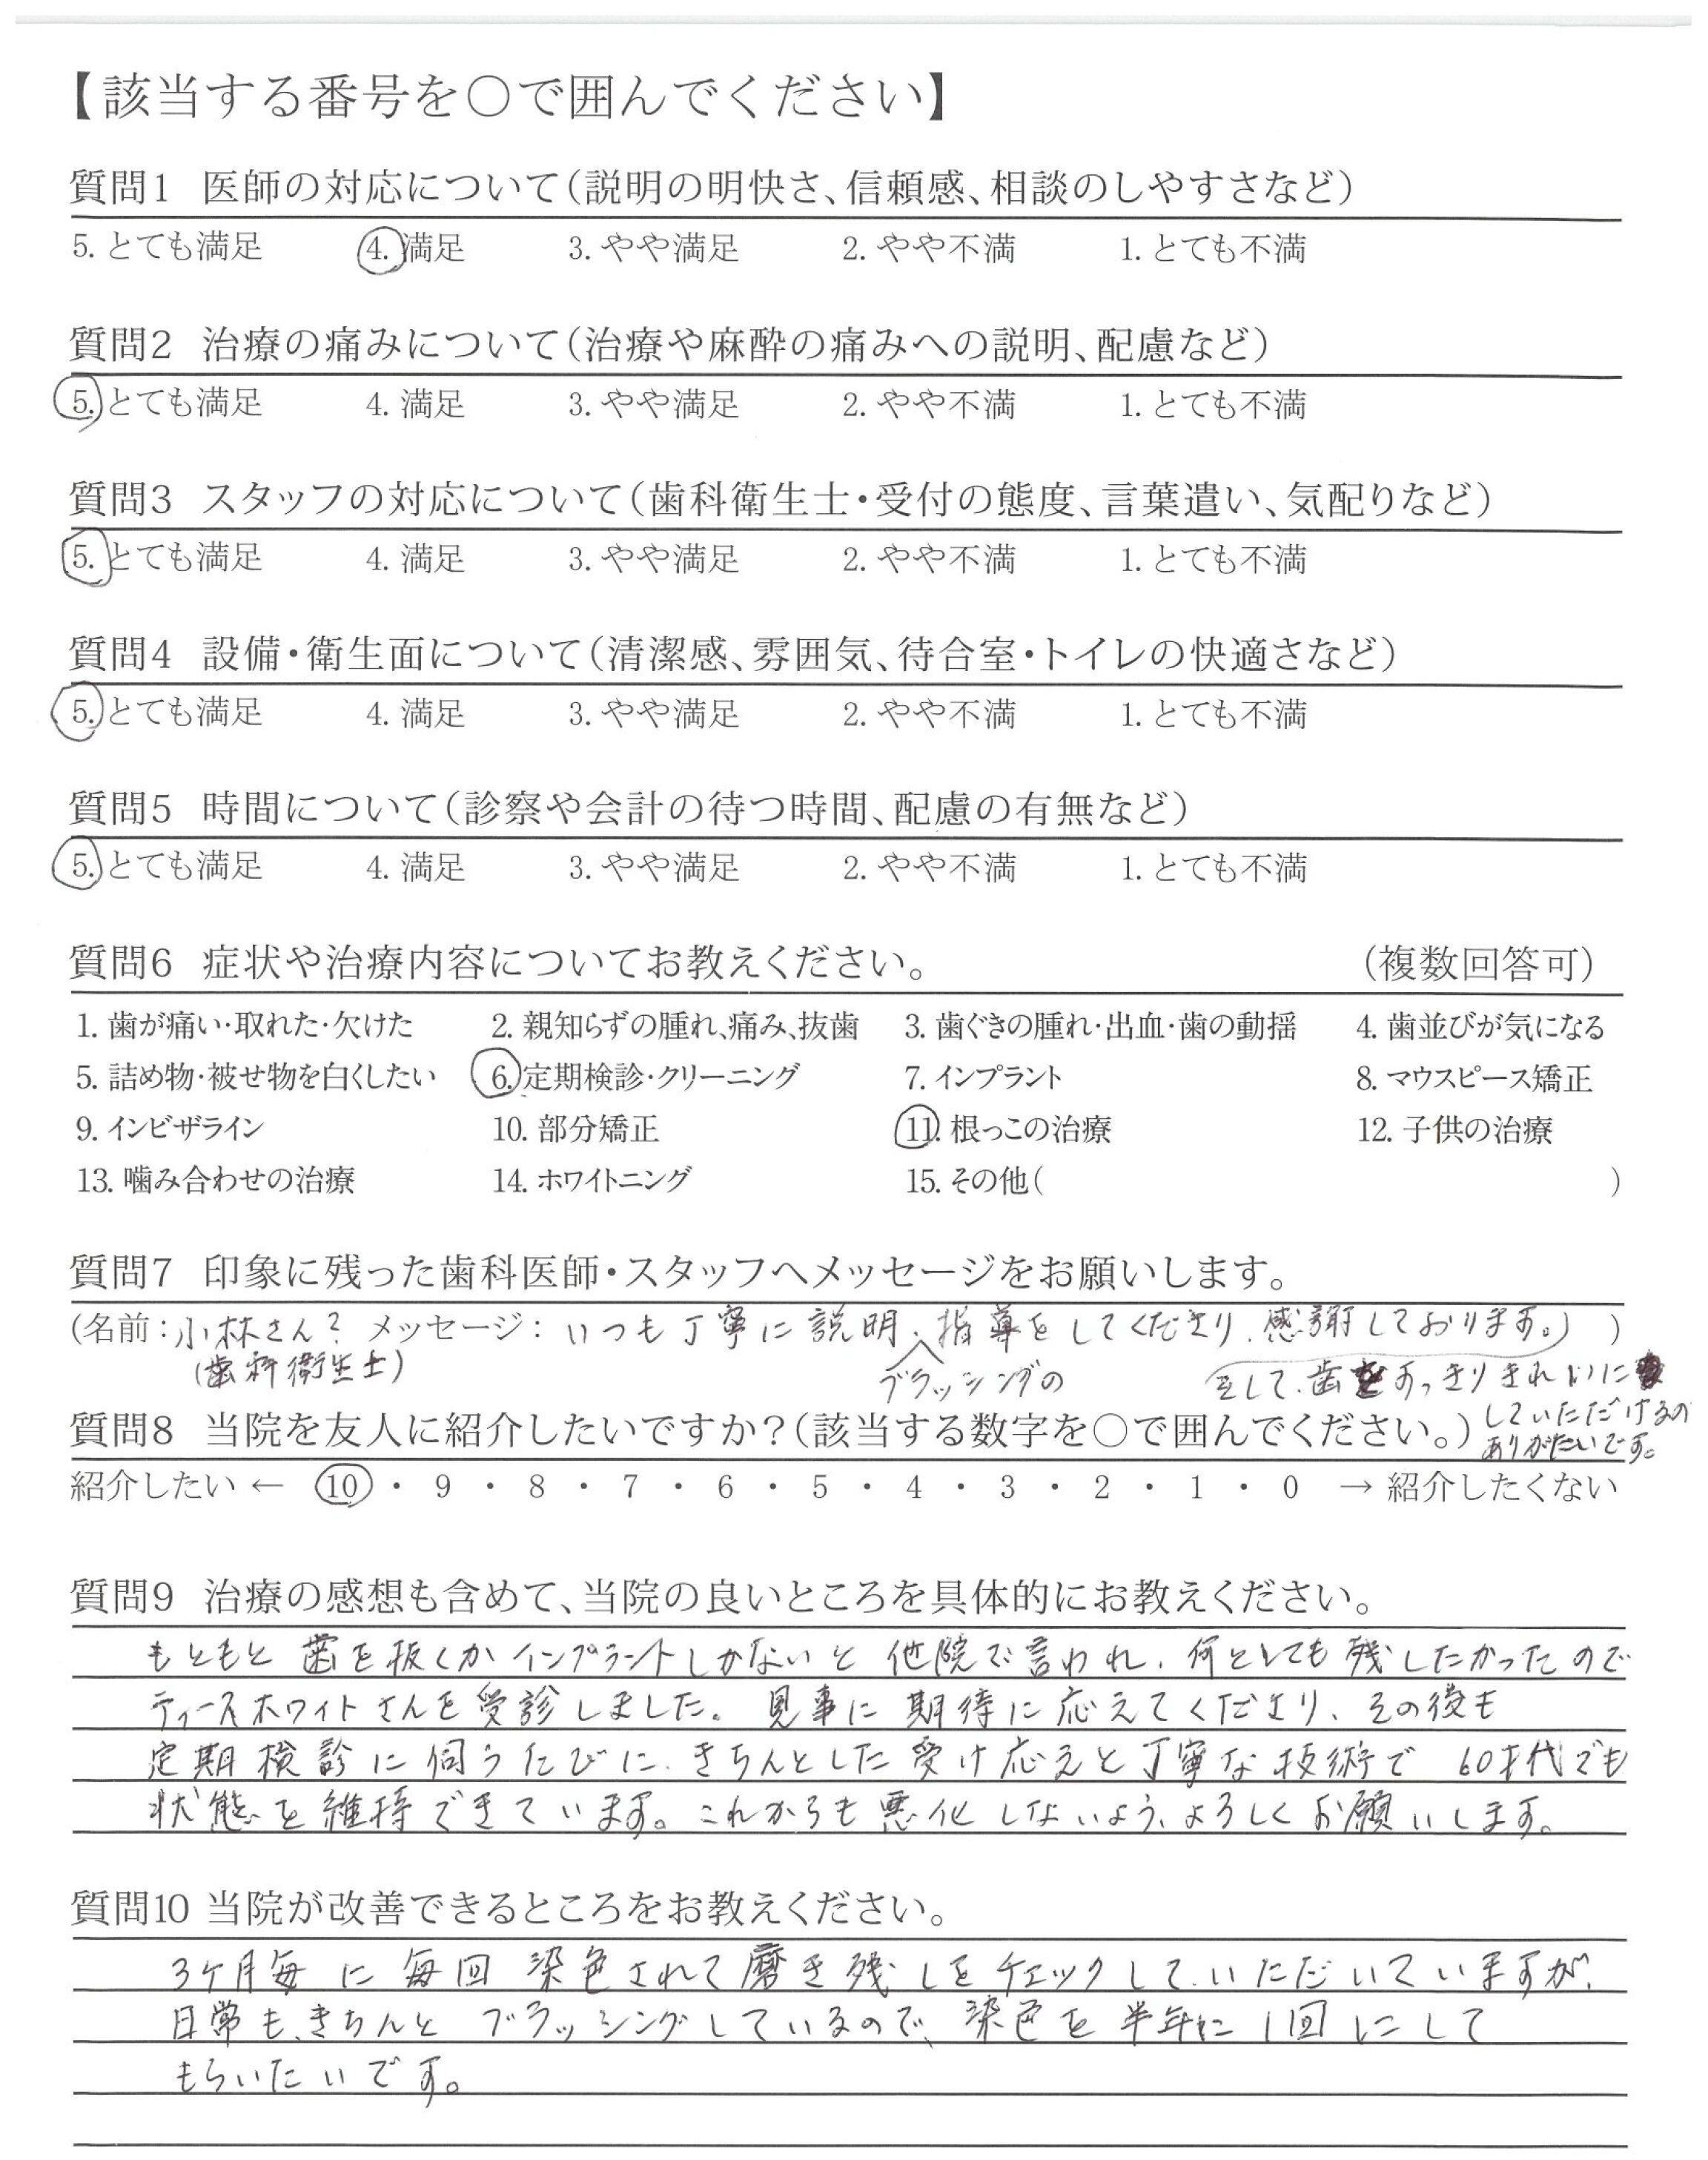 【該当する番号を○で囲んでください】
質問1 医師の対応について(説明の明快さ、信頼感、相談のしやすさなど)
5. とても満足 4. 満足 3. やや満足 2. やや不満 1. とても不満
質問2 治療の痛みについて(治療や麻酔の痛みへの説明、配慮など)
5. とても満足 4. 満足 3. やや満足 2. やや不満 1. とても不満
質問3 スタッフの対応について(歯科衛生士・受付の態度、言葉遣い、気配りなど)
5. とても満足 4. 満足 3. やや満足 2. やや不満 1. とても不満
質問4 設備・衛生面について(清潔感、雰囲気、待合室・トイレの快適さなど)
5. とても満足 4. 満足 3. やや満足 2. やや不満 1. とても不満
質問5 時間について(診察や会計の待つ時間、配慮の有無など)
5. とても満足 4. 満足 3. やや満足 2. やや不満 1. とても不満
質問6 症状や治療内容についてお教えください。 (複数回答可)
1. 歯が痛い・取れた・欠けた 2. 親知らずの腫れ、痛み、抜歯 3. 歯ぐきの腫れ・出血・歯の動揺 4. 歯並びが気になる
5. 詰め物・被せ物を白くしたい 6. 定期検診・クリーニング 7. インプラント 8. マウスピース矯正
9. インビザライン 10. 部分矯正 11. 根っこの治療 12. 子供の治療
13. 噛み合わせの治療 14. ホワイトニング 15. その他( )
質問7 印象に残った歯科医師・スタッフへメッセージをお願いします。
(名前:小林さん? メッセージ:いつも丁寧に説明、指導をしてくださり、感謝しております。)
(歯科衛生士) ブラッシングの そして、歯をすっきりきれいに
していただけるの
ありがたいです。
質問8 当院を友人に紹介したいですか?(該当する数字を○で囲んでください。)
紹介したい ← 10 ・ 9 ・ 8 ・ 7 ・ 6 ・ 5 ・ 4 ・ 3 ・ 2 ・ 1 ・ 0 → 紹介したくない
質問9 治療の感想も含めて、当院の良いところを具体的にお教えください。
もともと歯を抜くかインプラントしかないと他院で言われ、何としても残したかったので
ティースホワイトさんを受診しました。見事に期待に応えてくださり、その後も
定期検診に伺うたびに、きちんとした受け応えと丁寧な技術で60才代でも
状態を維持できています。これからも悪化しないよう、よろしくお願いします。
質問10 当院が改善できるところをお教えください。
3ケ月毎に毎回染色されて磨き残しをチェックして、いただいていますが、
日常も、きちんとブラッシングしているので、染色を半年に1回にして
もらいたいです。